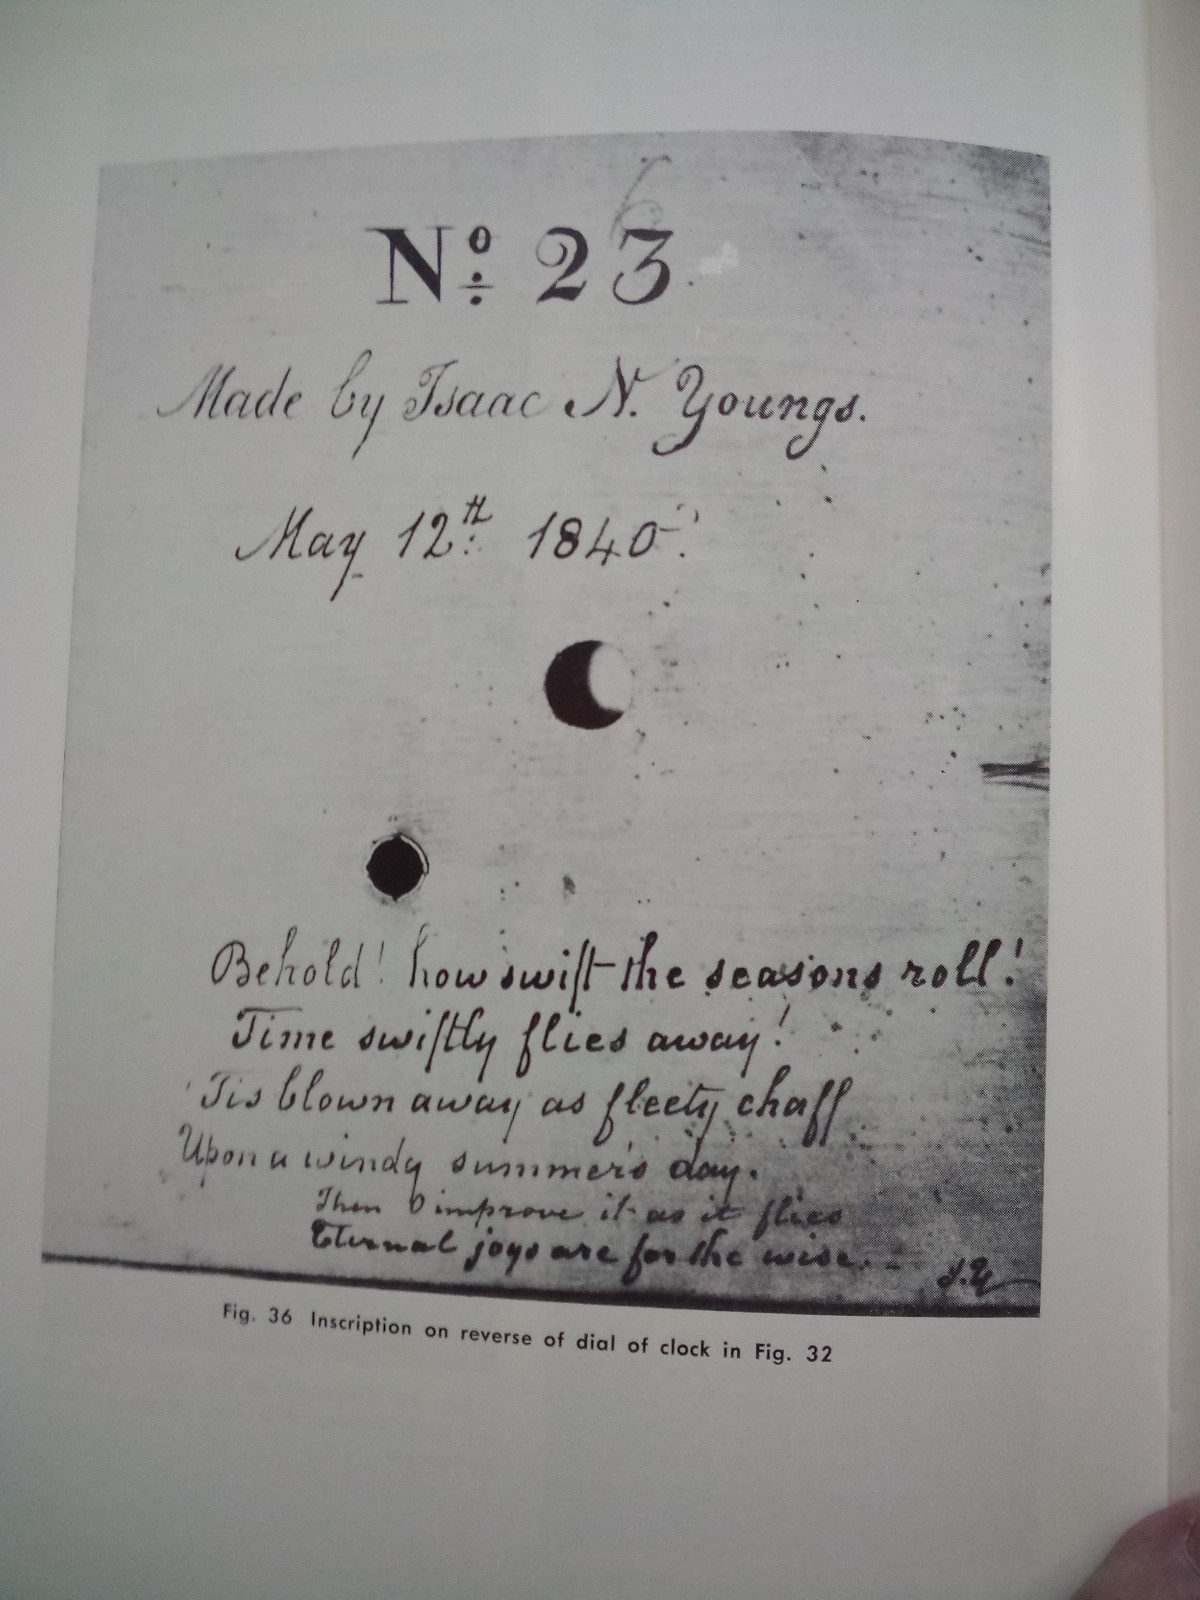 Nº 23
Made by Isaac N. Youngs.
May 12th 1840.
Behold! how swift the seasons roll!
Time swiftly flies away!
'Tis blown away as fleety chaff
Upon a windy summer's day.
Then O improve it as it flies
Eternal joys are for the wise. -
I.Y
Fig. 36 Inscription on reverse of dial of clock in Fig. 32